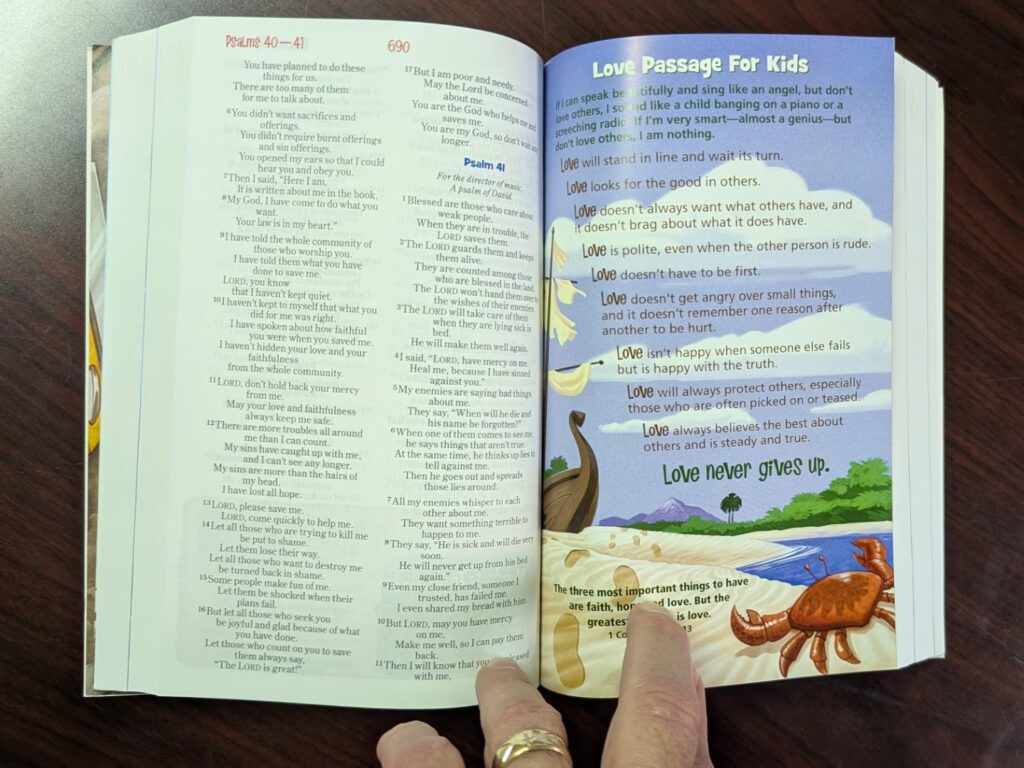 Psalms 40—41
690
You have planned to do these
things for us.
There are too many of them
for me to talk about.
6You didn't want sacrifices and
offerings.
You didn't require burnt offerings
and sin offerings.
You opened my ears so that I could
hear you and obey you.
7Then I said, "Here I am.
It is written about me in the book.
8My God, I have come to do what you
want.
Your law is in my heart."
9I have told the whole community of
those who worship you.
I have told them what you have
done to save me.
LORD, you know
that I haven't kept quiet.
10I haven't kept to myself that what you
did for me was right.
I have spoken about how faithful
you were when you saved me.
I haven't hidden your love and your
faithfulness
from the whole community.
11LORD, don't hold back your mercy
from me.
May your love and faithfulness
always keep me safe.
12There are more troubles all around
me than I can count.
My sins have caught up with me,
and I can't see any longer.
My sins are more than the hairs of
my head.
I have lost all hope.
13LORD, please save me.
LORD, come quickly to help me.
14Let all those who are trying to kill me
be put to shame.
Let them lose their way.
Let all those who want to destroy me
be turned back in shame.
15Some people make fun of me.
Let them be shocked when their
plans fail.
16But let all those who seek you
be joyful and glad because of what
you have done.
Let those who count on you to save
them always say,
"The LORD is great!"
17But I am poor and needy.
May the Lord be concerned
about me.
You are the God who helps me and
saves me.
You are my God, so don't wait any
longer.
Psalm 41
For the director of music.
A psalm of David.
1Blessed are those who care about
weak people.
When they are in trouble, the
LORD saves them.
2The LORD guards them and keeps
them alive.
They are counted among those
who are blessed in the land.
The LORD won't hand them over to
the wishes of their enemies.
3The LORD will take care of them
when they are lying sick in
bed.
He will make them well again.
4I said, "LORD, have mercy on me.
Heal me, because I have sinned
against you."
5My enemies are saying bad things
about me.
They say, "When will he die and
his name be forgotten?"
6When one of them comes to see me,
he says things that aren't true.
At the same time, he thinks up lies to
tell against me.
Then he goes out and spreads
those lies around.
7All my enemies whisper to each
other about me.
They want something terrible to
happen to me.
8They say, "He is sick and will die very
soon.
He will never get up from his bed
again."
9Even my close friend, someone I
trusted, has failed me.
I even shared my bread with him.
10But LORD, may you have mercy
on me.
Make me well, so I can pay them
back.
11Then I will know that you pleased
with me,
Love Passage For Kids
If I can speak beautifully and sing like an angel, but don't
love others, I sound like a child banging on a piano or a
screeching radio. If I'm very smart—almost a genius—but
don't love others, I am nothing.
Love will stand in line and wait its turn.
Love looks for the good in others.
Love doesn't always want what others have, and
it doesn't brag about what it does have.
Love is polite, even when the other person is rude.
Love doesn't have to be first.
Love doesn't get angry over small things,
and it doesn't remember one reason after
another to be hurt.
Love isn't happy when someone else fails
but is happy with the truth.
Love will always protect others, especially
those who are often picked on or teased.
Love always believes the best about
others and is steady and true.
Love never gives up.
The three most important things to have
are faith, love. But the
greatest is love.
1